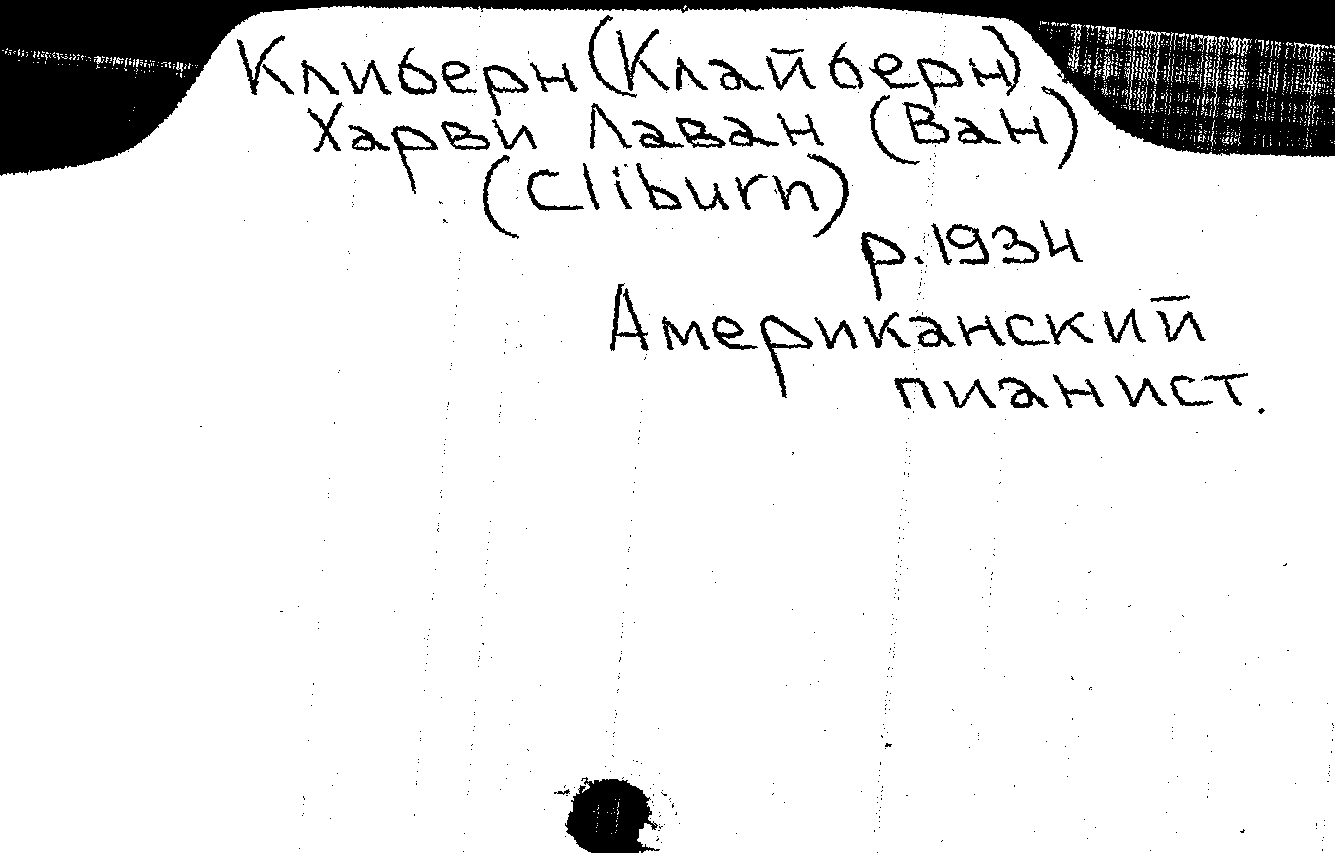 Клиберн (Клайберн)
Харви Лаван (Ван)
(Cliburn)
р. 1934
Американский
пианист.